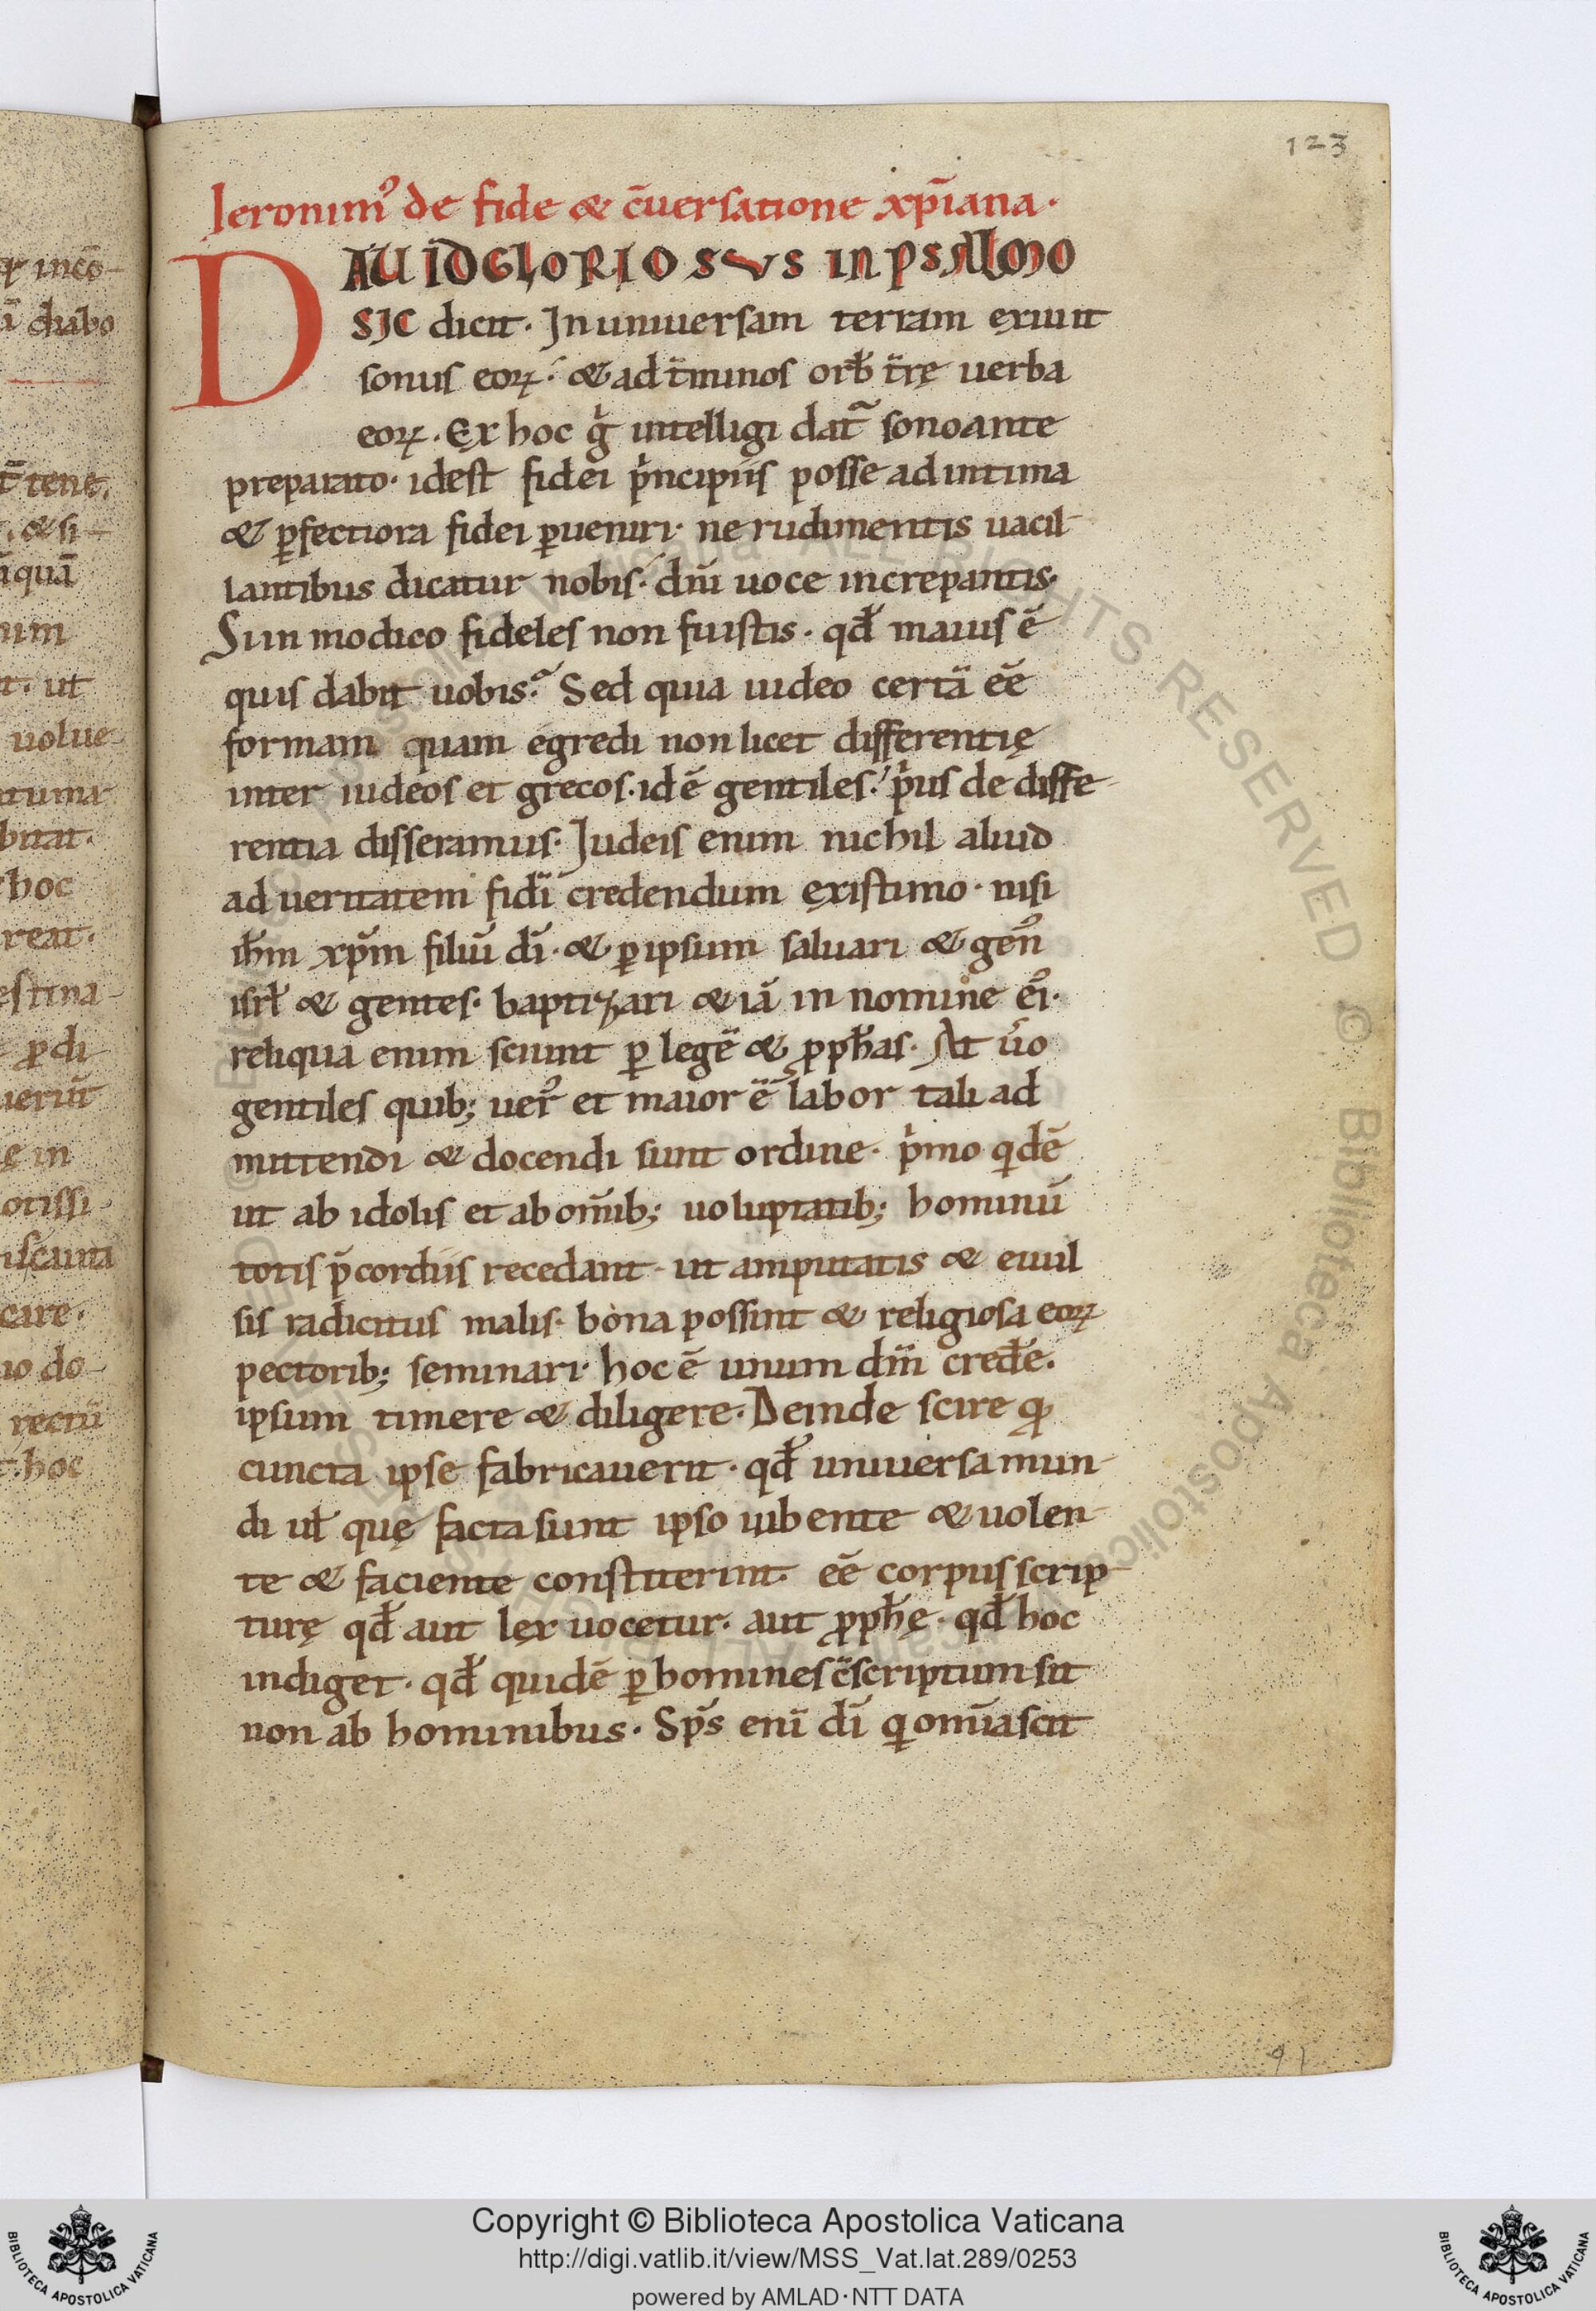 123
Ieronim᷒ de fide & c̄uersatione xp̄iana·
DAUID GLORIOSUS IN PSALMO
SIC dicit· In uniuersam terram exiuit
sonus eoꝝ· & ad t̄minos orb̄ t̄rę uerba
eoꝝ· Ex hoc g̊ intelligi dat᷑ sono ante
preparato· id est fidei p̍ncipiis posse ad intima
& ꝑfectiora fidei ꝑueniri· ne rudimentis uacil-
lantibus dicatur nobis· dn̄i uoce increpantis·
Si in modico fideles non fuistis· qđ maius ē
quis dabit uobis? Sed quia uideo certā eē
formam quam egredi non licet differentię
inter iudeos et grecos· id ē gentiles· p̍us de diffe-
rentia disseramus· Iudeis enim nichil aliud
ad ueritatem fidī credendum existimo· nisi
ih̄m xp̄m filiū dī· & ꝑ ipsum saluari & gen᷒
isrł & gentes· baptizari & iā in nomine ei᷒·
reliqua enim sciunt ꝑ legē & ꝓph̄as· At ůo
gentiles quib; uer᷒ et maior ē labor tali ad
mittendi & docendi sunt ordine· p̍mo qͥdē
ut ab idolis et ab om̄ib; uoluptatib; hominū
totis p̄cordiis recedant· ut amputatis & euul
sis radicitus malis· bona possint & religiosa eoꝝ
pectorib; seminari· hoc ē unum dm̄ cred̄e·
ipsum timere & diligere· Deinde scire qđ
cuncta ipse fabricauerit· qđ uniuersa mun-
di uł quę facta sunt ipso iubente & uolen-
te & faciente constiterint· eē corpus scrip-
turę qđ aut lex uocetur· aut ꝓph̄ę· qđ hoc
indiget· qđ quidē ꝑ homines c̄scriptum sit
non ab hominibus· Sp̄s enī dī qͥ om̄ia scit
91
ꝙ incō-
diabo
tene.
· & si-
quā
num
ut
uolue-
bitat·
hoc
reat·
estina-
ꝓdi
uerūt
ę in
otissi
care·
uo do-
rectū
hoc
© Biblioteca Apostolica Vaticana ALL RIGHTS RESERVED
Copyright © Biblioteca Apostolica Vaticana
http://digi.vatlib.it/view/MSS_Vat.lat.289/0253
powered by AMLAD·NTT DATA
BIBLIOTECA APOSTOLICA VATICANA
BIBLIOTECA APOSTOLICA VATICANA